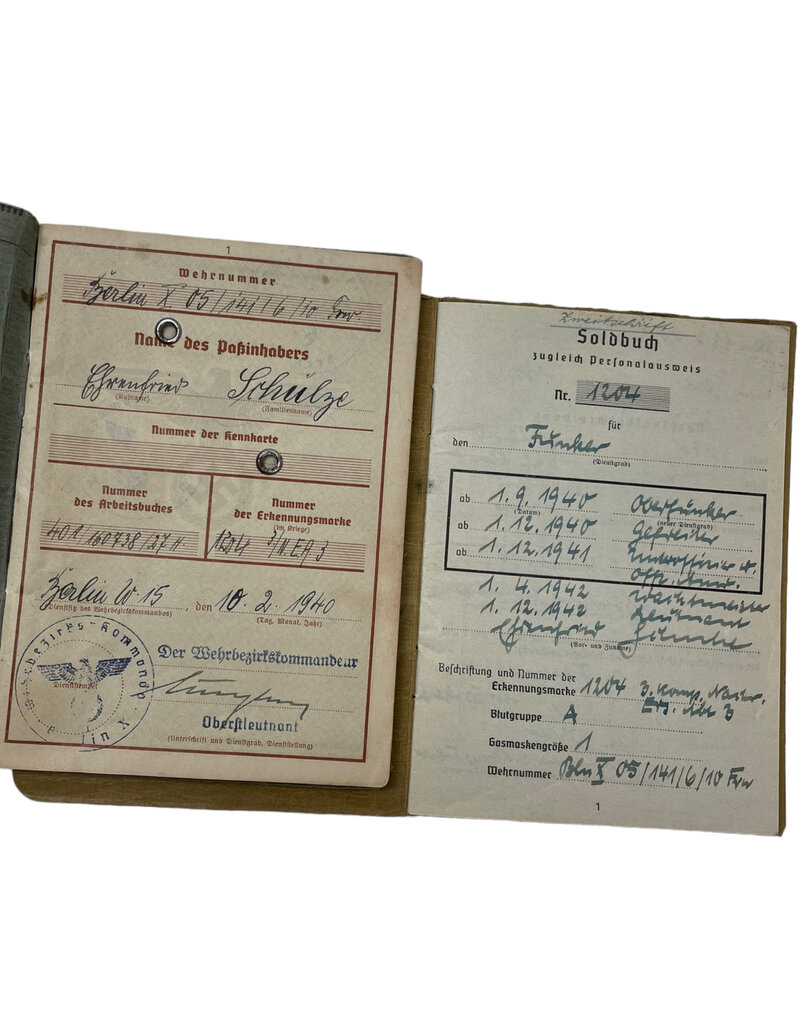 1
Wehrnummer
Berlin X 05/141/6/10 Frw
Name des Paßinhabers
Ehrenfried Schulze
(Rufname) (Familienname)
Nummer der Kennkarte
Nummer
des Arbeitsbuches
401/160738/27 H
Nummer
der Erkennungsmarke
(im Kriege)
1204 3/N.EA 3
Berlin W 15, den 10.2.1940
(Dienstsitz des Wehrbezirkskommandos) (Tag, Monat, Jahr)
Wehrbezirks-Kommando
Berlin X
Dienststempel
Der Wehrbezirkskommandeur
Oberstleutnant
(Unterschrift und Dienstgrad, Dienststellung)
Zweitschrift
Soldbuch
zugleich Personalausweis
Nr. 1204
für
den Funker
(Dienstgrad)
ab 1.9.1940 Oberfunker
(Datum) (neuer Dienstgrad)
ab 1.12.1940 Gefreiter
ab 1.12.1941 Unteroffizier
1.4.1942 Wachtmeister
1.12.1942 Leutnant
Ehrenfried Schulze
(Vor- und Zuname)
Beschriftung und Nummer der
Erkennungsmarke 1204 3. Komp. Nachr.
Ers. Abt 3
Blutgruppe A
Gasmaskengröße 1
Wehrnummer Bln X 05/141/6/10 Frw
1